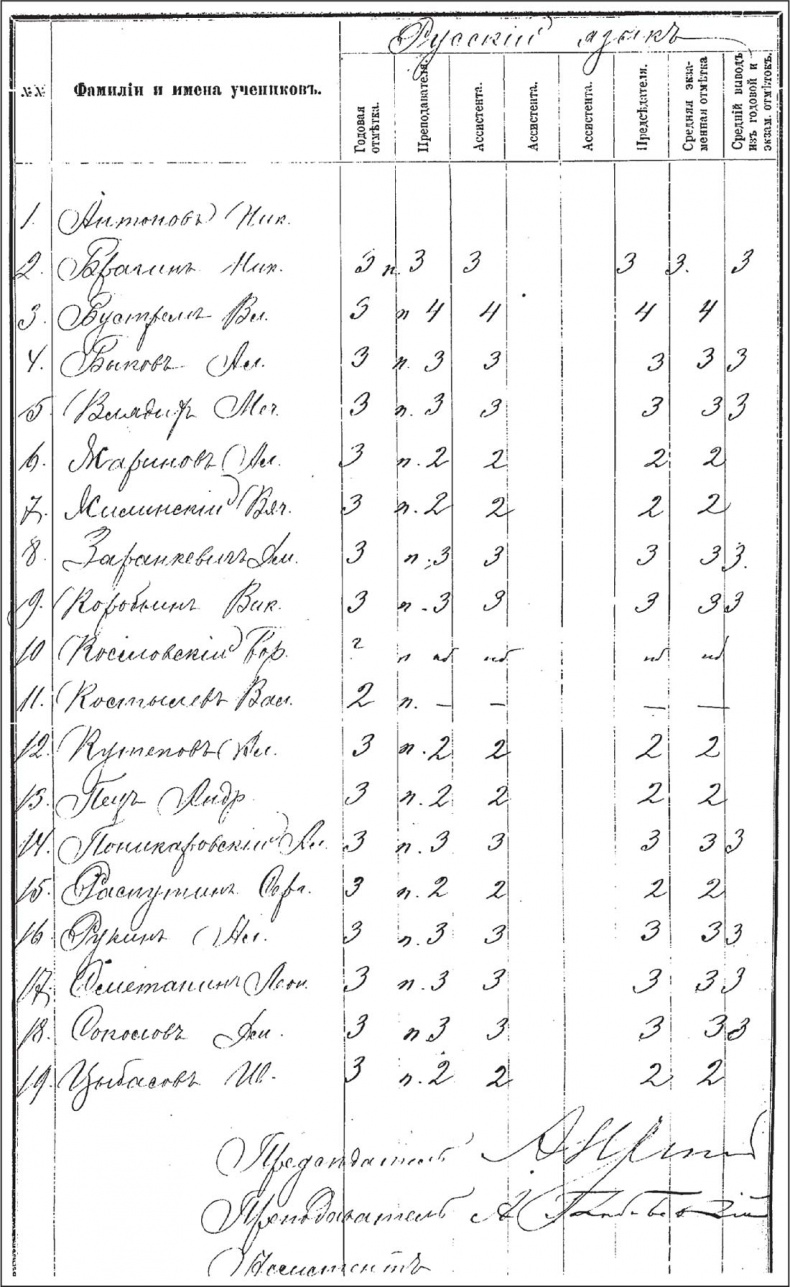 Русскій языкъ
№№ Фамиліи и имена учениковъ. Годовая отмѣтка. Преподавателя. Ассистента. Ассистента. Ассистента. Предсѣдателя. Средняя экзаменная отмѣтка Средній выводъ изъ годовой и экзам. отмѣтокъ.
1. Антоновъ Ник.
2. Брагинъ Ник. 3 п. 3 3 3 3. 3
3. Бустремъ Вл. 3 п 4 4 4 4
4. Быковъ Ал. 3 п. 3 3 3 3 3
5. Меч. 3 п. 3 3 3 3 3
6. Жариновъ Ал. 3 п. 2 2 2 2
7. Жилинскій Вяч. 3 п. 2 2 2 2
8. Заранкевичъ 3 п. 3 3 3 3 3.
9. Коробьинъ Вик. 3 п. 3 3 3 3 3
10 Бор. п нб нб нб нб
11. Костылевъ Вас. 2 п. – – – –
12. Кутеповъ Ал. 3 п. 2 2 2 2
13. Пецъ Андр. 3 п. 2 2 2 2
14. Поникаровскій Ал. 3 п. 3 3 3 3 3
15. Распутинъ Серг. 3 п. 2 2 2 2
16 Рукинъ Ал. 3 п. 3 3 3 3 3
17. Сметанинъ Леон. 3 п. 3 3 3 3 3
18. Соколовъ 3 п 3 3 3 3 3
19. Цыбасовъ Ив. 3 п. 2 2 2 2
Председатель
Преподаватель А
Ассистентъ